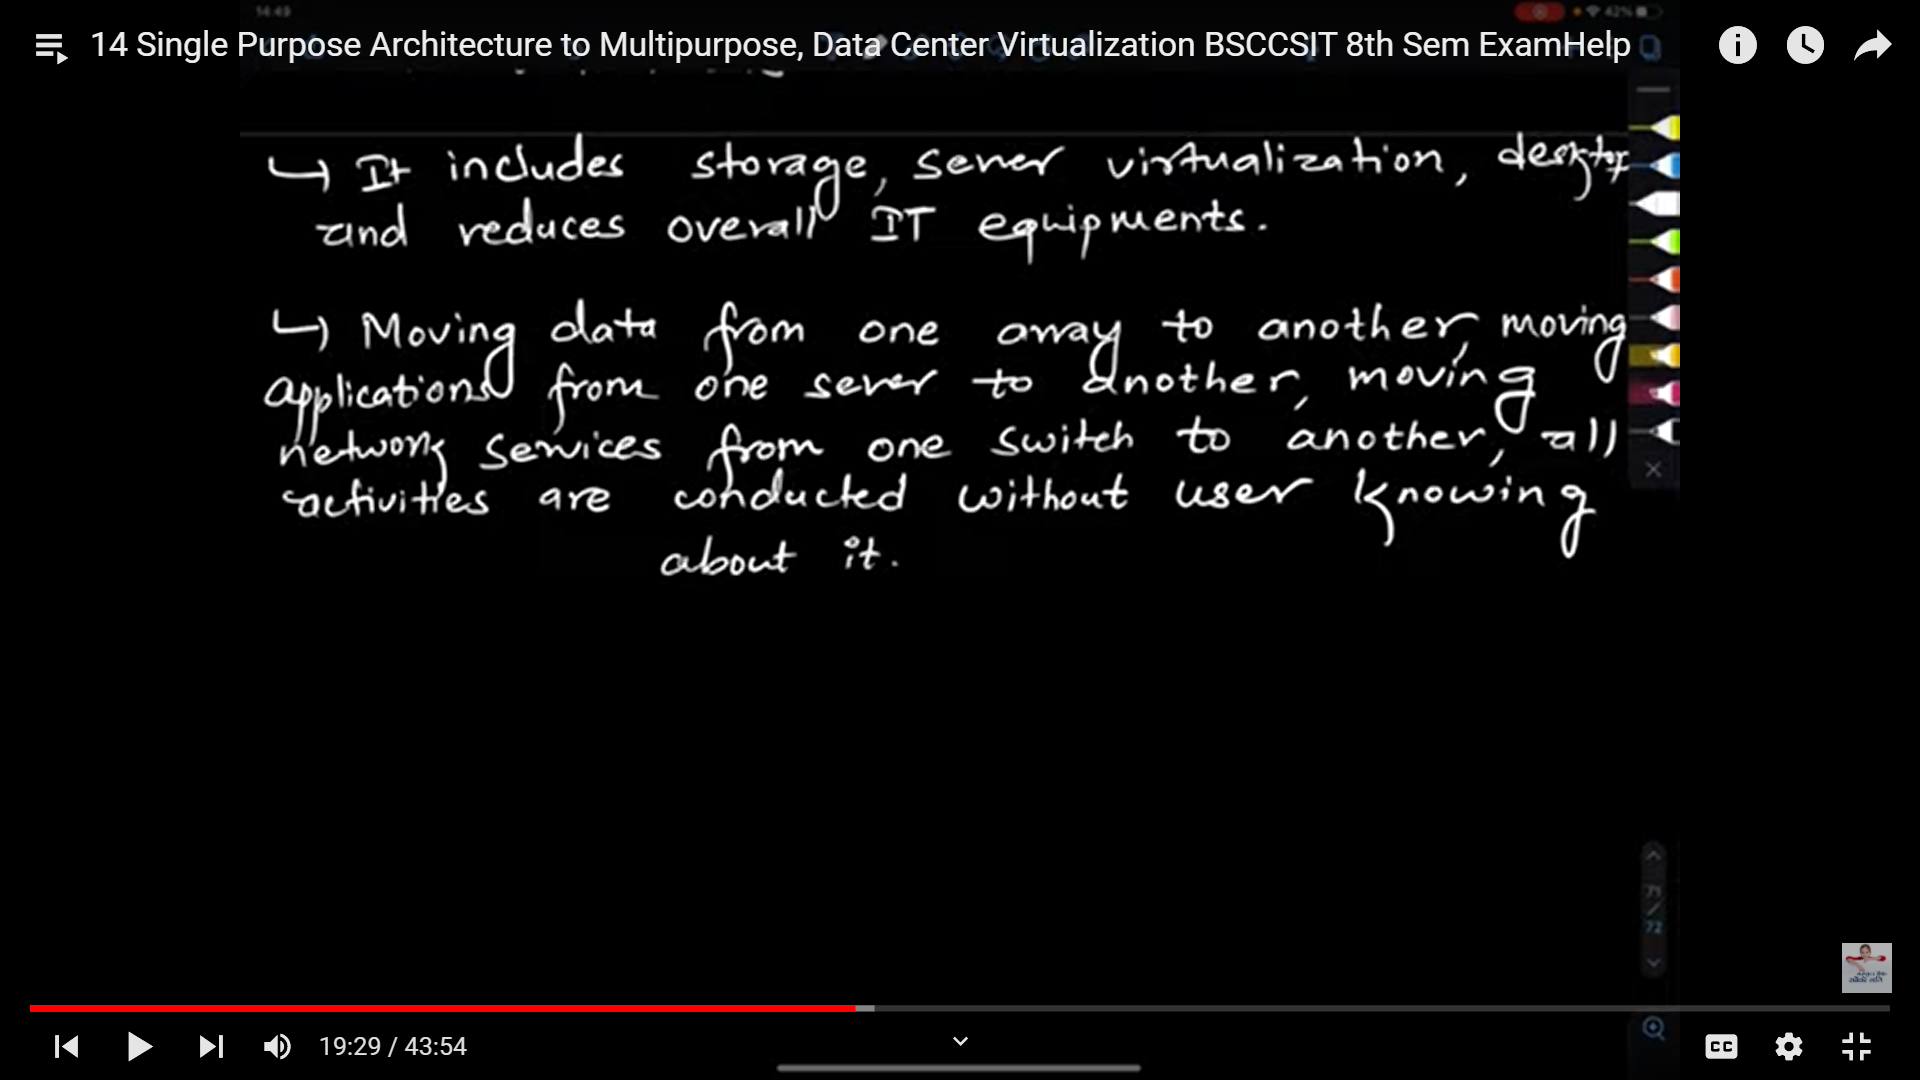 14:49
42%
14 Single Purpose Architecture to Multipurpose, Data Center Virtualization BSCCSIT 8th Sem ExamHelp
↳ It includes storage, sever virtualization, desktop
and reduces overall IT equipments.
↳ Moving data from one array to another, moving
applications from one sever to another, moving
network services from one switch to another, all
activities are conducted without user knowing
about it.
72
19:29 / 43:54
CC